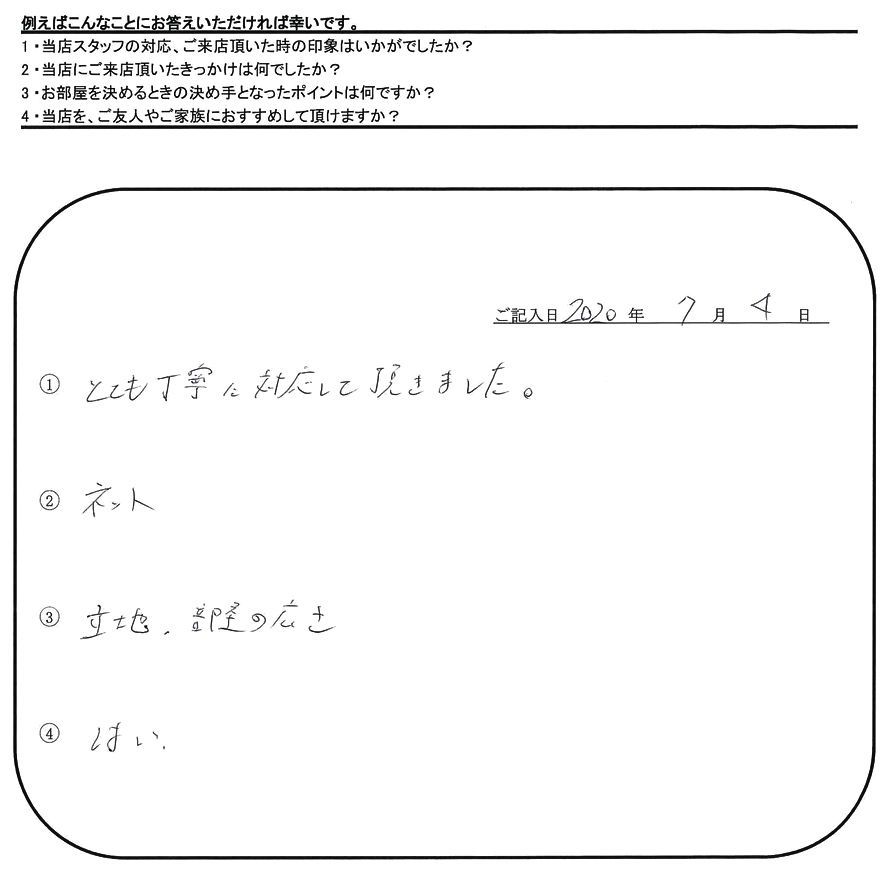 例えばこんなことにお答えいただければ幸いです。
1・当店スタッフの対応、ご来店頂いた時の印象はいかがでしたか？
2・当店にご来店頂いたきっかけは何でしたか？
3・お部屋を決めるときの決め手となったポイントは何ですか？
4・当店を、ご友人やご家族におすすめして頂けますか？
ご記入日 2020 年 7 月 4 日
① とても丁寧に対応して頂きました。
② ネット
③ 立地、部屋の広さ
④ はい。